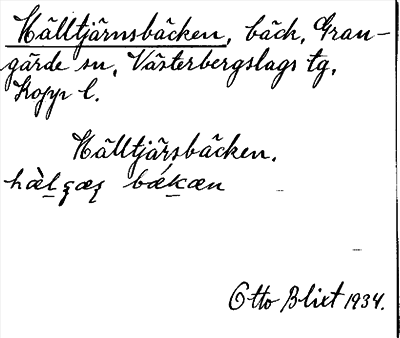 Hälltjärnsbäcken, bäck, Gran-
gärde sn, Västerbergslags tg,
Kopp. l.
Hälltjärsbäcken.
bækæn
Otto Blixt 1934.